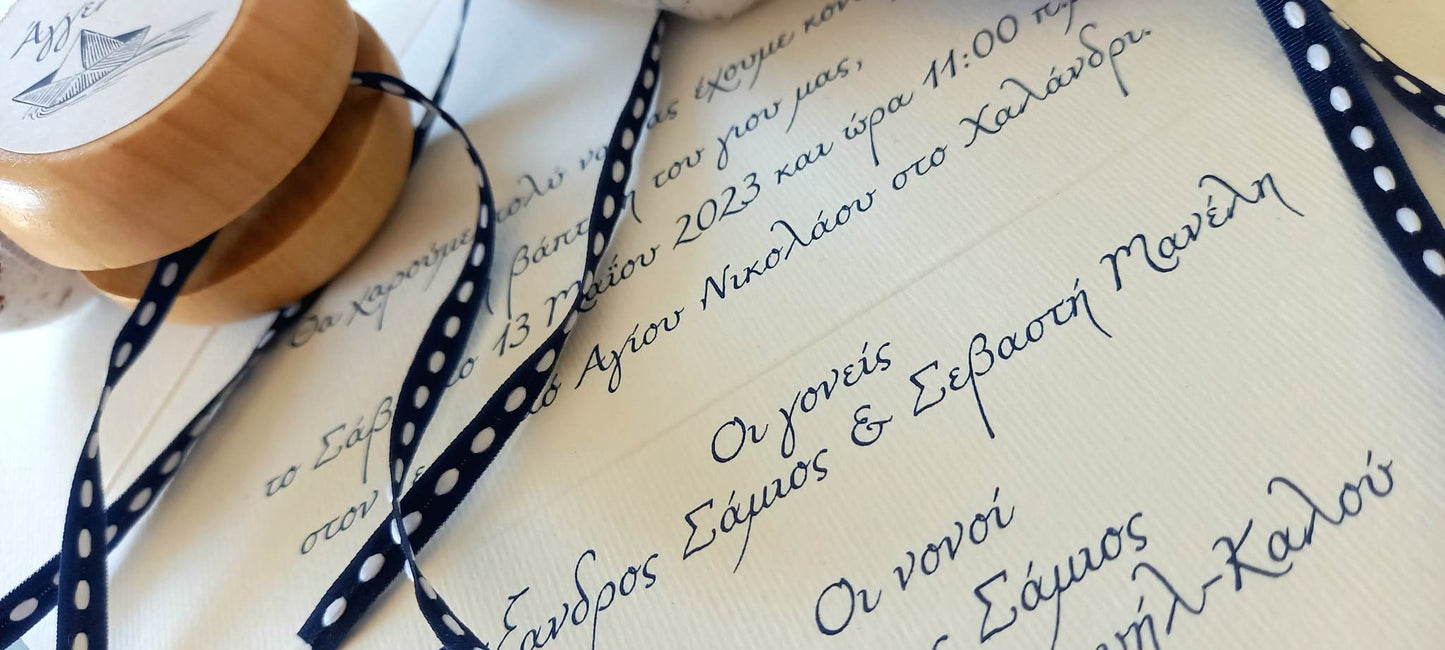 Θα χαρούμε πολύ να σας έχουμε
βάπτιση του γιου μας,
το Σάββατο 13 Μαΐου 2023 και ώρα 11:00 π.μ.
στον Αγίου Νικολάου στο Χαλάνδρι.
Οι γονείς
Σάμιος & Σεβαστή Μανέλη
Οι νονοί
Σάμιος